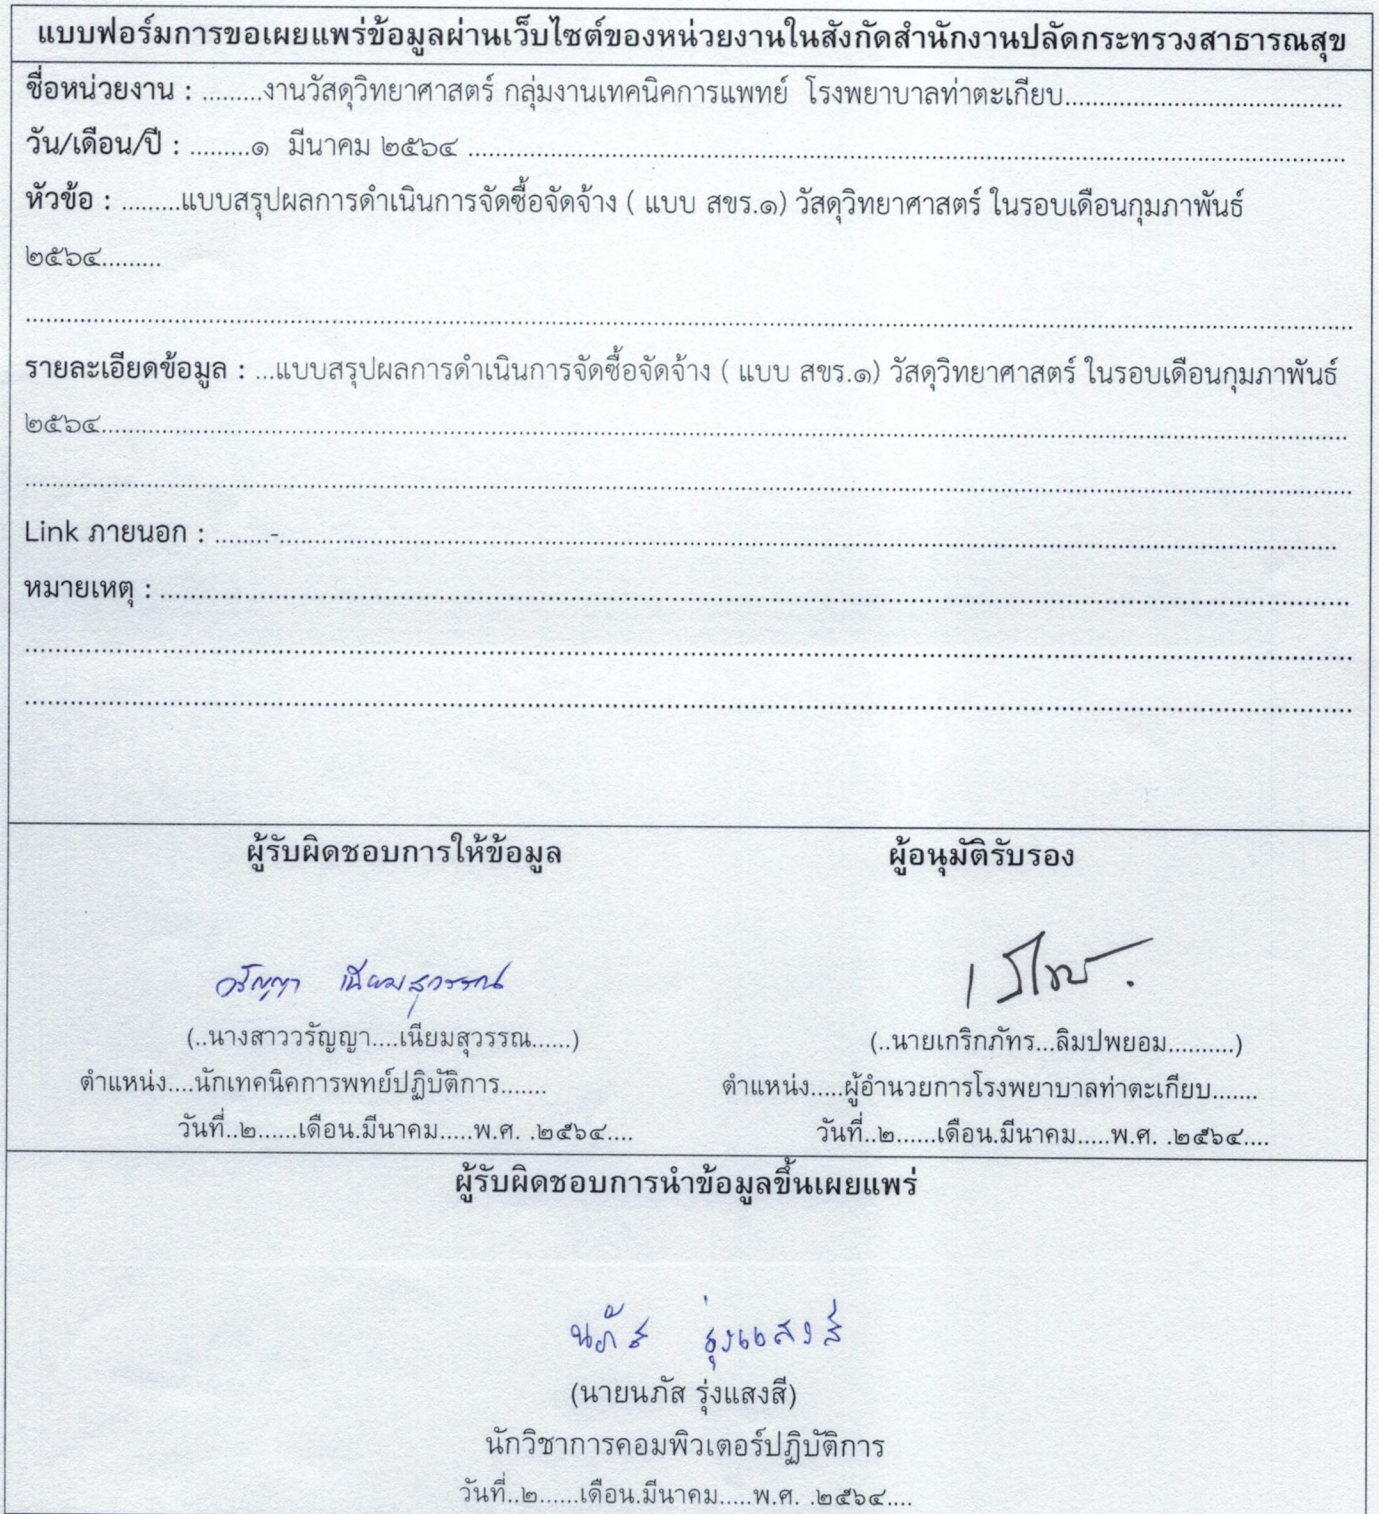 แบบฟอร์มการขอเผยแพร่ข้อมูลผ่านเว็บไซต์ของหน่วยงานในสังกัดสำนักงานปลัดกระทรวงสาธารณสุข
ชื่อหน่วยงาน : .........งานวัสดุวิทยาศาสตร์ กลุ่มงานเทคนิคการแพทย์ โรงพยาบาลท่าตะเกียบ..........................................
วัน/เดือน/ปี : .........๑ มีนาคม ๒๕๖๔ ....................................................................................................
หัวข้อ : .........แบบสรุปผลการดำเนินการจัดซื้อจัดจ้าง ( แบบ สขร.๑) วัสดุวิทยาศาสตร์ ในรอบเดือนกุมภาพันธ์
๒๕๖๔.........
รายละเอียดข้อมูล : ...แบบสรุปผลการดำเนินการจัดซื้อจัดจ้าง ( แบบ สขร.๑) วัสดุวิทยาศาสตร์ ในรอบเดือนกุมภาพันธ์
๒๕๖๔....................................................................................................
Link ภายนอก : ........-....................................................................................................
หมายเหตุ : ....................................................................................................
ผู้รับผิดชอบการให้ข้อมูล
วรัญญา เนียมสุวรรณ
(..นางสาววรัญญา....เนียมสุวรรณ......)
ตำแหน่ง....นักเทคนิคการพทย์ปฏิบัติการ.......
วันที่..๒......เดือน.มีนาคม.....พ.ศ. .๒๕๖๔....
ผู้อนุมัติรับรอง
(..นายเกริกภัทร...ลิมปพยอม..........)
ตำแหน่ง.....ผู้อำนวยการโรงพยาบาลท่าตะเกียบ.......
วันที่..๒......เดือน.มีนาคม.....พ.ศ. .๒๕๖๔....
ผู้รับผิดชอบการนำข้อมูลขึ้นเผยแพร่
นภัส รุ่งแสงสี
(นายนภัส รุ่งแสงสี)
นักวิชาการคอมพิวเตอร์ปฏิบัติการ
วันที่..๒......เดือน.มีนาคม.....พ.ศ. .๒๕๖๔....